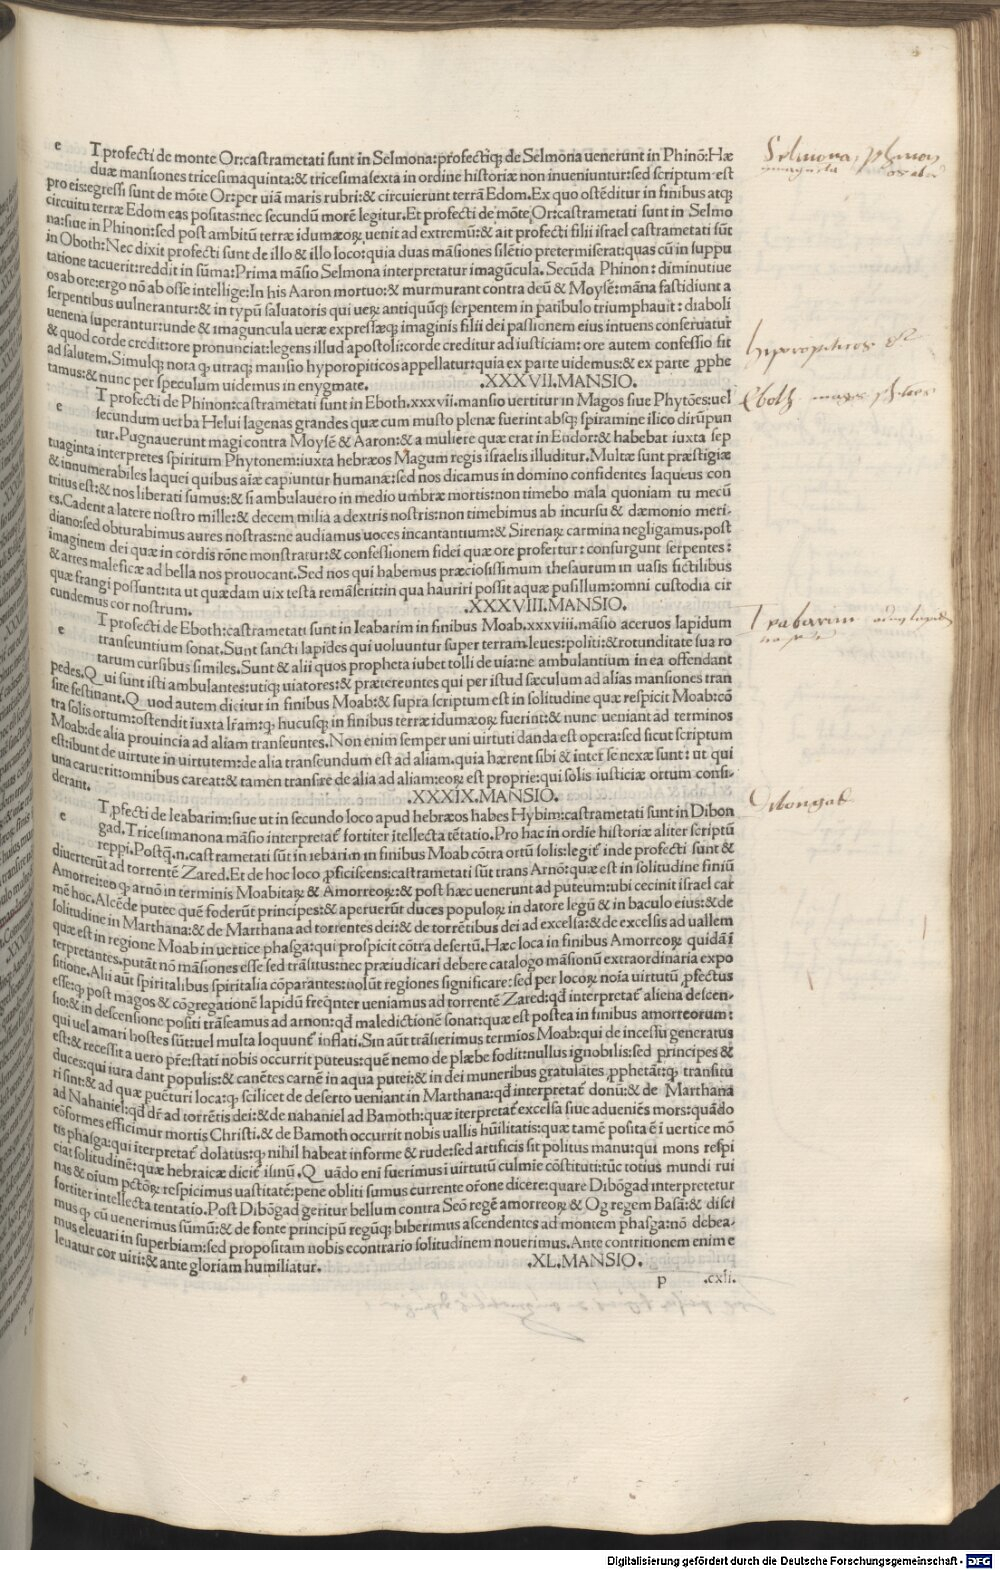 e T profecti de monte Or:castrametati sunt in Selmona:profectiq; de Selmona uenerunt in Phinō:Hæ
duæ mansiones tricesimaquinta:& tricesimasexta in ordine historiæ non inueniuntur:sed scriptum est
pro eis:egressi sunt de mōte Or:per uiā maris rubri:& circuierunt terrā Edom.Ex quo ostēditur in finibus atq;
circuitu terræ Edom eas positas:nec secundū morē legitur.Et profecti de mōte Or:castrametati sunt in Selmo
na:siue in Phinon:sed post ambitū terræ idumæoꝝ uenit ad extremū:& ait profecti filii israel castrametati sūt
in Oboth:Nec dixit profecti sunt de illo & illo loco:quia duas māsiones silētio pretermiserat:quas cū in suppu
tatione tacuerit:reddit in sūma:Prima māsio Selmona interpretatur imagūcula.Secūda Phinon:diminutiue
os ab ore:ergo nō ab osse intellige:In his Aaron mortuo:& murmurant contra deū & Moysē:māna fastidiunt a
serpentibus uulnerantur:& in typū saluatoris qui ueꝝ antiquūq; serpentem in patibulo triumphauit:diaboli
uenena superantur:unde & imaguncula ueræ expressæq; imaginis filii dei passionem eius intuens conseruatur
& quod corde credit:ore pronunciat:legens illud apostoli:corde creditur ad iusticiam:ore autem confessio fit
ad salutem.Simulq; nota ꝙ utraq; mansio hyporopiticos appellatur:quia ex parte uidemus:& ex parte ꝓphe
tamus:& nunc per speculum uidemus in enygmate. .XXXVII.MANSIO.
e T profecti de Phinon:castrametati sunt in Eboth.xxxvii.mansio uertitur in Magos siue Phytōes:uel
secundum uerba Helui lagenas grandes quæ cum musto plenæ fuerint absq; spiramine ilico dirūpun
tur.Pugnauerunt magi contra Moysē & Aaron:& a muliere quæ erat in Endor:& habebat iuxta sep
tuaginta interpretes spiritum Phytonem:iuxta hebræos Magum regis israelis illuditur.Multæ sunt præstigiæ
& innumerabiles laquei quibus aiæ capiuntur humanæ:sed nos dicamus in domino confidentes laqueus con
tritus est:& nos liberati sumus:& si ambulauero in medio umbræ mortis:non timebo mala quoniam tu mecū
es.Cadent a latere nostro mille:& decem milia a dextris nostris:non timebimus ab incursu & dæmonio meri-
diano:sed obturabimus aures nostras:ne audiamus uoces incantantium:& Sirenaꝝ carmina negligamus.post
imaginem dei quæ in cordis rōne monstratur:& confessionem fidei quæ ore profertur:consurgunt serpentes:
& artes maleficæ ad bella nos prouocant.Sed nos qui habemus præciosissimum thesaurum in uasis fictilibus
quæ frangi possunt:ita ut quædam uix testa remāserit:in qua hauriri possit aquæ pusillum:omni custodia cir
cundemus cor nostrum. .XXXVIII.MANSIO.
e T profecti de Eboth:castrametati sunt in Ieabarim in finibus Moab.xxxviii.māsio aceruos lapidum
transeuntium sonat.Sunt sancti lapides qui uoluuntur super terram.leues:politi:& rotunditate sua ro
tarum cursibus similes.Sunt & alii quos propheta iubet tolli de uia:ne ambulantium in ea offendant
pedes.Qui sunt isti ambulantes:utiq; uiatores:& prætereuntes qui per istud sæculum ad alias mansiones tran
sire festinant.Quod autem dicitur in finibus Moab:& supra scriptum est in solitudine quæ respicit Moab:cō
tra solis ortum:ostendit iuxta lr̄am:ꝙ hucusq; in finibus terræ idumæoꝝ fuerint:& nunc ueniant ad terminos
Moab:de alia prouincia ad aliam transeuntes.Non enim semper uni uirtuti danda est opera:sed sicut scriptum
est:ibunt de uirtute in uirtutem:de alia transeundum est ad aliam.quia hærent sibi & inter se nexæ sunt:ut qui
una caruerit:omnibus careat:& tamen transire de alia ad aliam:eoꝝ est proprie:qui solis iusticiæ ortum consi-
derant. .XXXIX.MANSIO.
e T ꝓfecti de Ieabarim:siue ut in secundo loco apud hebræos habes Hybim:castrametati sunt in Dibon
gad.Tricesimanona māsio interpretat᷑ fortiter itellecta tētatio.Pro hac in ordie historiæ aliter scriptū
reppi.Postq̄.n.castrametati sūt in iebarim in finibus Moab cōtra ortū solis:legit᷑ inde profecti sunt &
diuerterūt ad torrentē Zared.Et de hoc loco ꝓficiscens:castrametati sūt trans Arnō:quæ est in solitudine finiū
Amorrei:eo ꝙ arnō in terminis Moabitaꝝ & Amorreoꝝ:& post hæc uenerunt ad puteum:ubi cecinit israel car
mē hoc.Alcēde putec quē foderūt principes:& aperuerūt duces populoꝝ in datore legū & in baculo eius:& de
solitudine in Marthana:& de Marthana ad torrentes dei:& de torrētibus dei ad excelsa:& de excelsis ad uallem
quæ est in regione Moab in uertice phasga:qui prospicit cōtra desertū.Hæc loca in finibus Amorreoꝝ quidā ī
terpretantes.putāt nō māsiones esse sed trāsitus:nec præiudicari debere catalogo māsionū extraordinaria expo
sitione.Alii aūt spiritalibus spiritalia cōparantes:nolūt regiones significare:sed per locoꝝ noīa uirtutū ꝓfectus
esse:ꝙ post magos & cōgregationē lapidū freqn̄ter ueniamus ad torrentē Zared:qd̄ interpretat᷑ aliena descen-
sio:& in descensione positi trāseamus ad arnon:qd̄ maledictionē sonat:quæ est postea in finibus amorreorum:
qui uel amari hostes sūt:uel multa loquunt᷑ inflati.Sin aūt trāsierimus termīos Moab:qui de incessu generatus
est:& recessit a uero pr̄e:stati nobis occurrit puteus:quē nemo de plæbe fodit:nullus ignobilis:sed principes &
duces:qui iura dant populis:& canētes carnē in aqua putei:& in dei muneribus gratulātes ꝓphetāt:ꝙ transitu
ri sint:& ad quæ puēturi loca:ꝙ scilicet de deserto ueniant in Marthana:qd̄ interpretat᷑ donū:& de Marthana
ad Nahaniel:qd̄ dr̄ ad torrētis dei:& de nahaniel ad Bamoth:quæ iterpretat᷑ excelsa siue adueniēs mors:quādo
cōformes efficimur mortis Christi.& de Bamoth occurrit nobis uallis hūilitatis:quæ tamē posita ē ī uertice mō
tis phasga:qui iterpretat᷑ dolatus:ꝙ nihil habeat informe & rude:sed artificis sit politus manu:qui mons respi
ciat solitudinē:quæ hebraicæ dicit᷑ isinū.Quādo eni fuerimus ī uirtutū culmie cōstituti:tūc totius mundi rui
nas & oīum pctōꝝ respicimus uastitatē:pene obliti sumus currente orōne dicere:quare Dibōgad interpretetur
fortiter intellecta tentatio.Post Dibōgad geritur bellum contra Seō regē amorreoꝝ & Og regem Basā:& disci
mus ꝙ cū uenerimus sūmū:& de fonte principū regūq; biberimus ascendentes ad montem phasga:nō debea-
mus eleuari in superbiam:sed propositam nobis econtrario solitudinem nouerimus.Ante contritionem enim e
leuatur cor uiri:& ante gloriam humiliatur. .XL.MANSIO.
p .cxli.
Selmona, phinon
imaguncula os ab ore
hyporopiticos
Eboth magos phitoes
Ieabarim
Dibongad
Digitalisierung gefördert durch die Deutsche Forschungsgemeinschaft - DFG